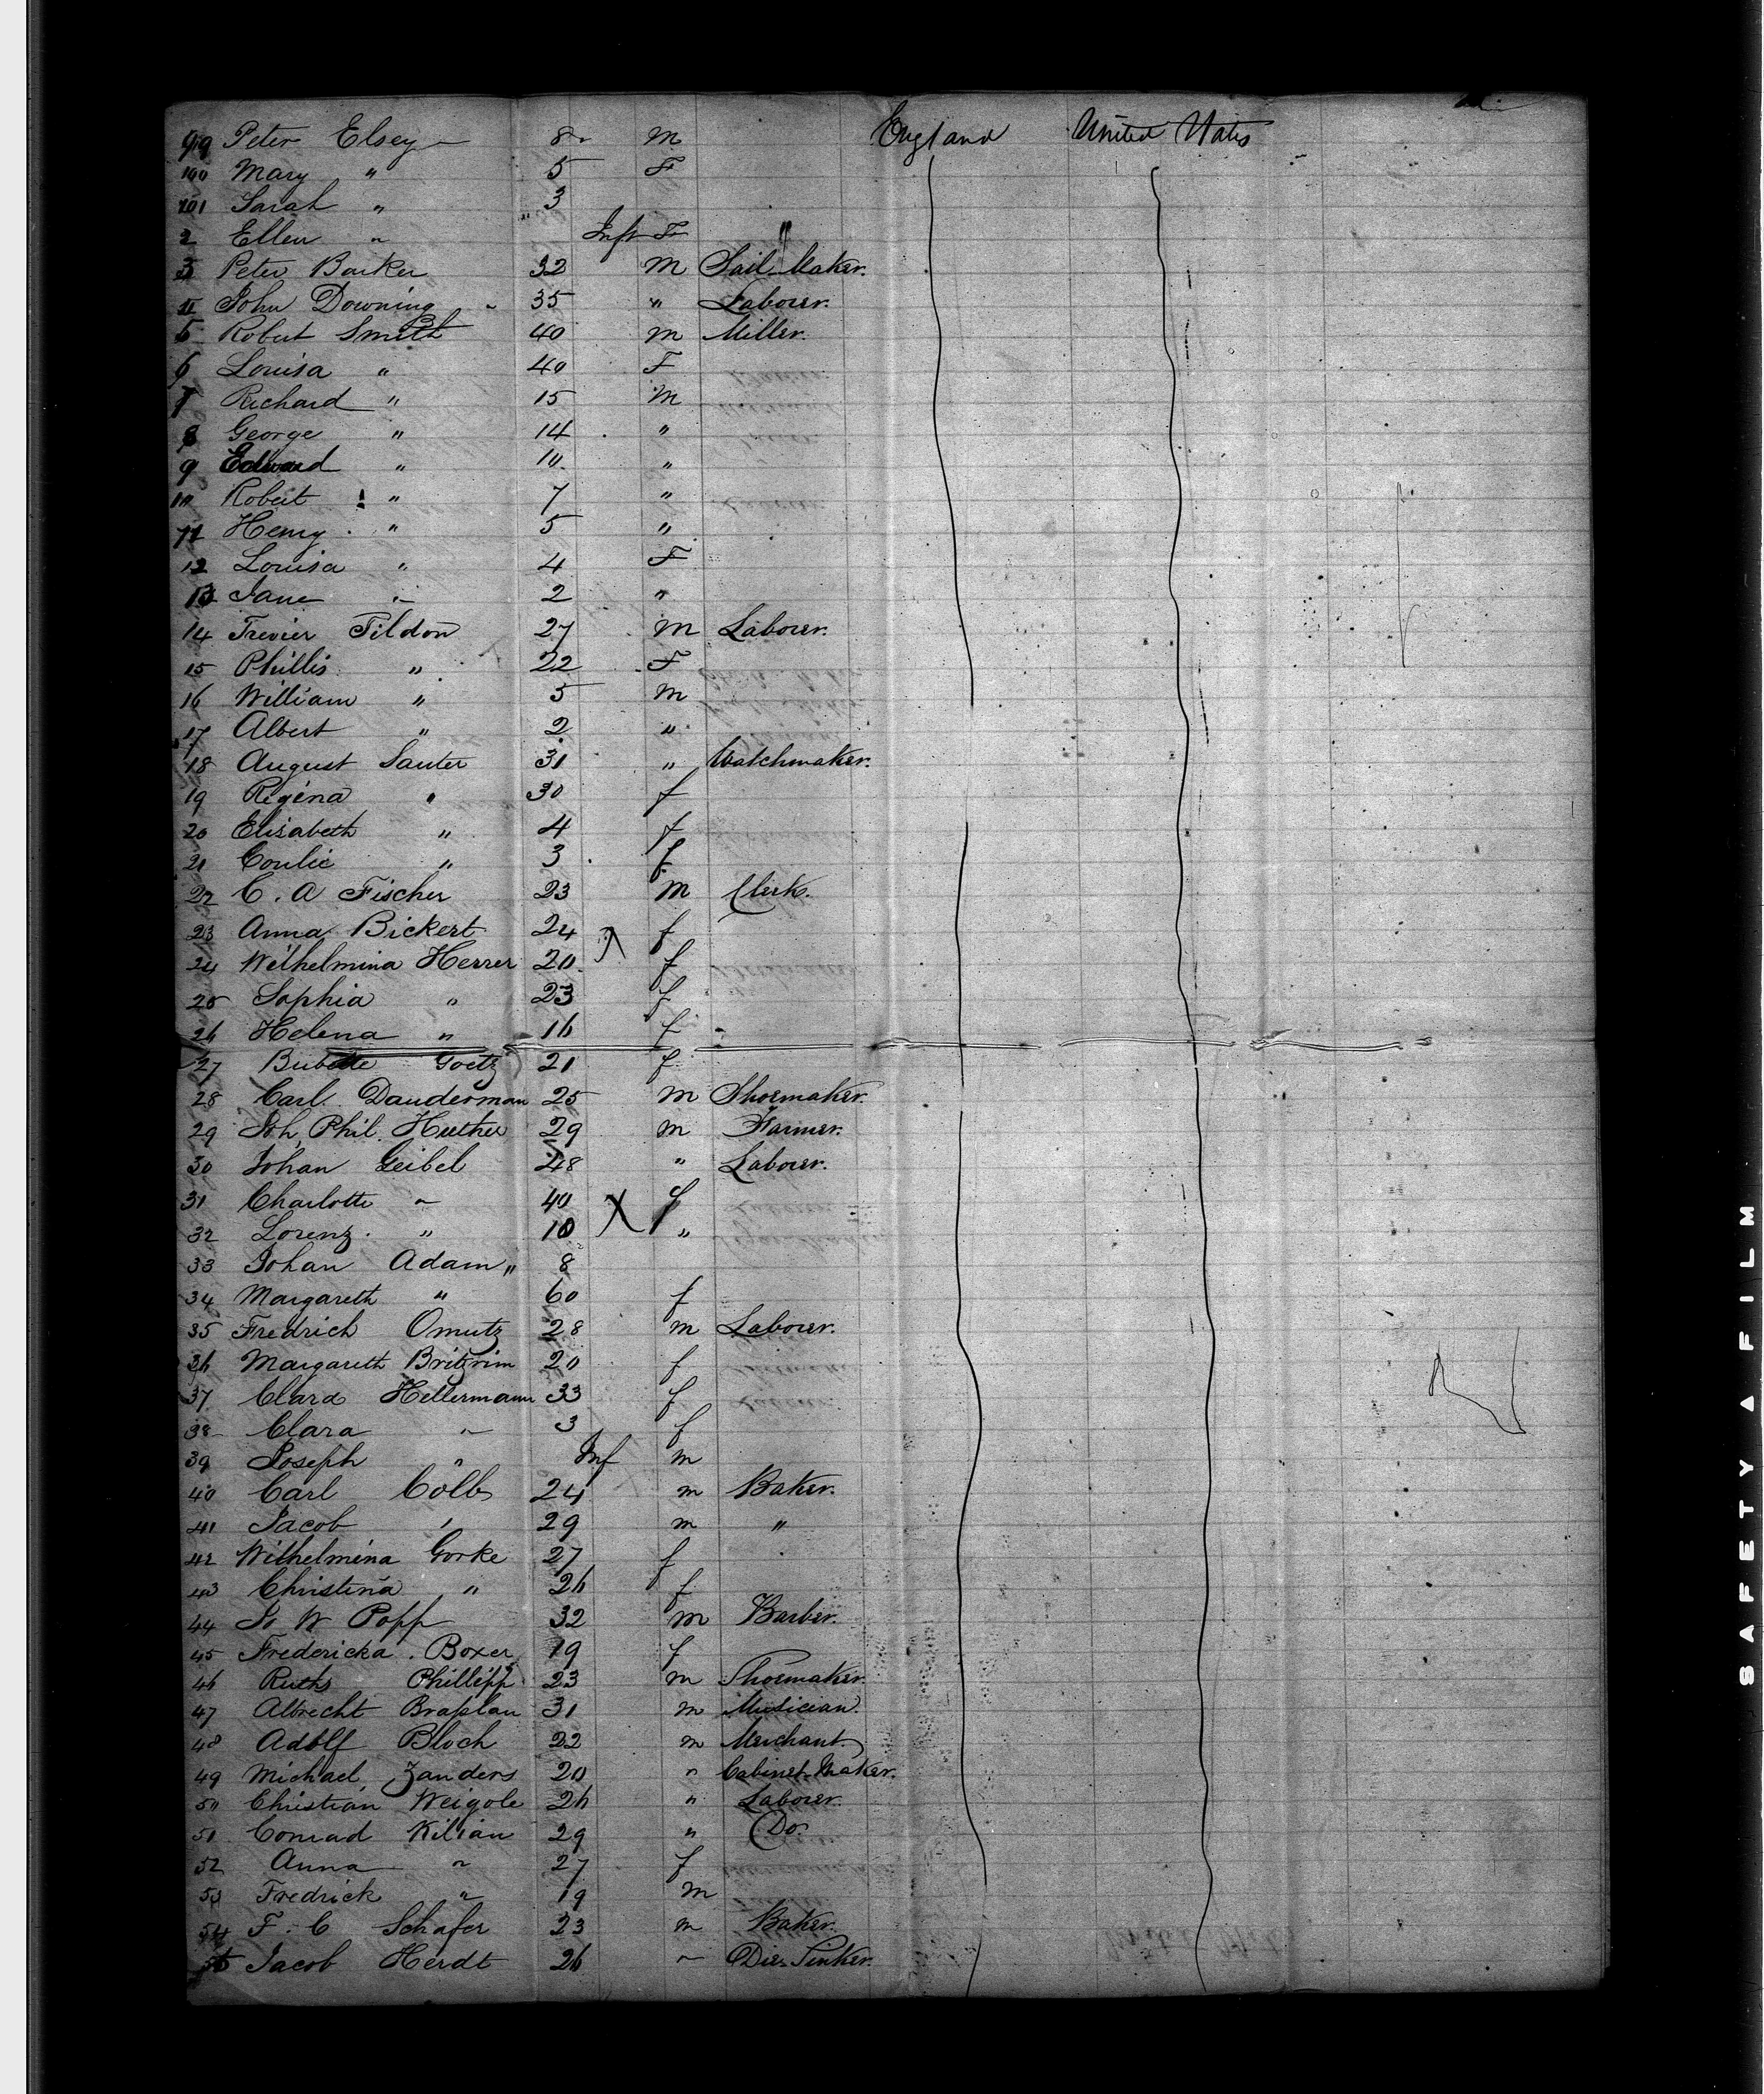 99 Peter Elsey 8 M England United States
100 Mary " 5 F
101 Sarah " 3
2 Ellen " Inft F "
3 Peter Barker 32 M Sail Maker.
4 John Downing 35 " Labourer.
5 Robert Smith 40 M Miller.
6 Louisa " 40 F
7 Richard " 15 M
8 George " 14 "
9 Edward " 10 "
10 Robert " 7 "
11 Henry " 5 "
12 Louisa " 4 F
13 Jane " 2 "
14 Trevier Tildon 27 M Labourer.
15 Phillis " 22 F
16 William " 5 M
17 Albert " 2 "
18 August Sauter 31 " Watchmaker.
19 Regina " 30 f
20 Elisabeth " 4 f
21 " 3 f
22 C. A Fischer 23 M Clerk.
23 Anna Bickert 24 f
24 Wilhelmina Herrer 20 f
25 Sophia " 23 f
26 Helena " 16 f
27 Goetz 21 f
28 Carl Dauderman 25 M Shoemaker.
29 Joh. Phil. Huther 29 m Farmer.
30 Johan Geibel 48 " Labourer.
31 Charlotte " 40 X f
32 Lorenz " 10 "
33 Johan Adam " 8
34 Margareth " 60 f
35 Fredrich Omutz 28 m Labourer.
36 Margareth 20 f
37 Clara Hellermann 33 f
38 Clara " 3 f
39 Joseph " Inf m
40 Carl Colb 24 m Baker.
41 Jacob " 29 m "
42 Wilhelmina Gorke 27 f
43 Christina " 26 f
44 W Popp 32 m Barber.
45 Fredericka Boxer 19 f
46 Phillipp 23 m Shoemaker
47 Albrecht Braplan 31 m Musician.
48 Adolf Bloch 22 m Merchant
49 Michael Zanders 20 " Cabinet Maker.
50 Christian Weigole 26 " Labourer
51 Conrad Kilian 29 " Do.
52 Anna " 27 f
53 Fredrick " 19 m
54 F. C Schafer 23 m Baker.
55 Jacob Herdt 26 " Die Sinker.
SAFETY A FILM